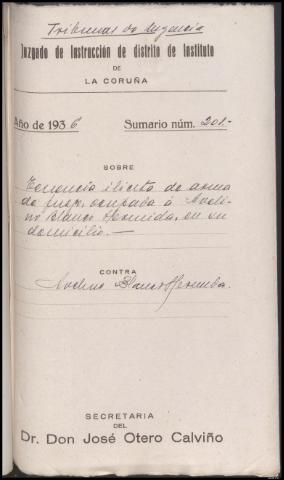 Tribunal de Urgencia
Juzgado de Instrucción de distrito de Instituto
DE
LA CORUÑA
Año de 1936 Sumario núm. 201.-
SOBRE
Tenencia ilícita de arma
de fuego, ocupada á Aveli-
no Blanco Hermida, en su
domicilio.—
CONTRA
Avelino Blanco Hermida.
SECRETARIA
DEL
Dr. Don José Otero Calviño